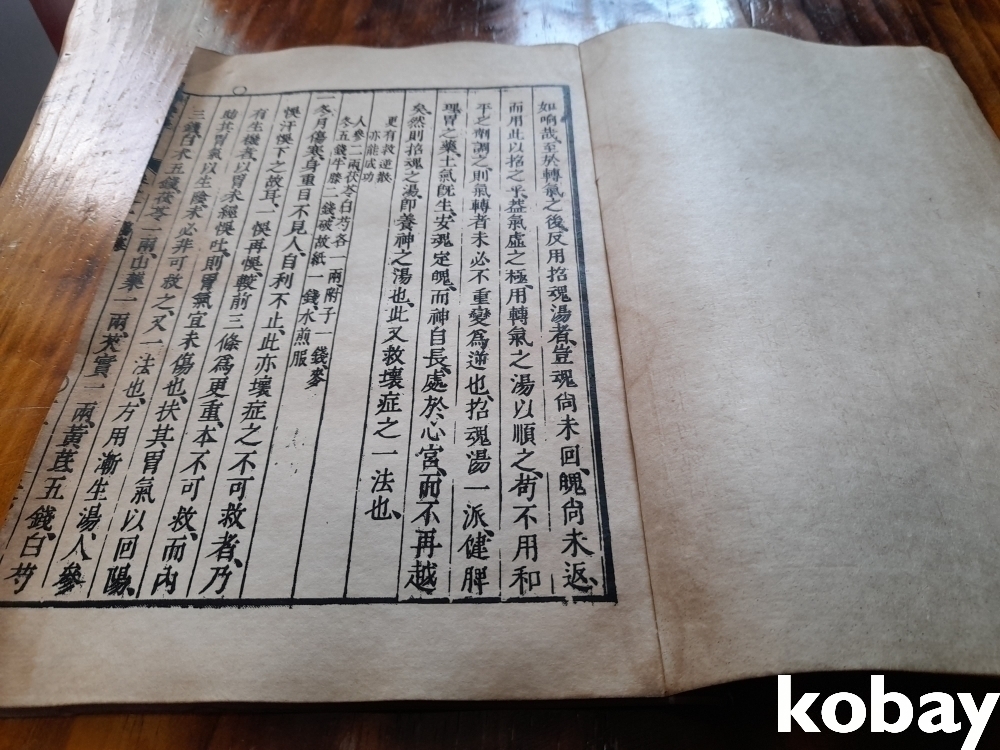 如响哉、至於轉氣之後、反用招魂湯者、豈魂尙未回、魄尙未返、
而用此以招之乎、葢氣虛之極、用轉氣之湯以順之、苟不用和
平之劑調之、則氣轉者未必不重變爲逆也、招魂湯一派、健脾
理胃之藥、土氣旣生、安魂定魄、而神自長、處於、心宮、而不再越
矣、然則招魂之湯、卽養神之湯也、此又救壞症之一法也、
更有救逆散
亦能成功
人參二兩茯苓白芍各一兩、附子一錢、麥
冬五錢牛膝二錢破故紙一錢、水煎服
一冬月傷寒、身重目不見人、自利不止、此亦壞症之不可救者、乃
悞汗悞下之故耳、一悞再悞、較前三條爲更重、本不可救、而內
有生機者、以胃未經悞吐、則胃氣宜未傷也、扶其胃氣以回陽、
助其胃氣以生陰、未必非可救之、又一法也、方用漸生湯、人參
三錢、白朮五錢、茯苓一兩、山藥一兩、芡實一兩、黃芪五錢、白芍
kobay